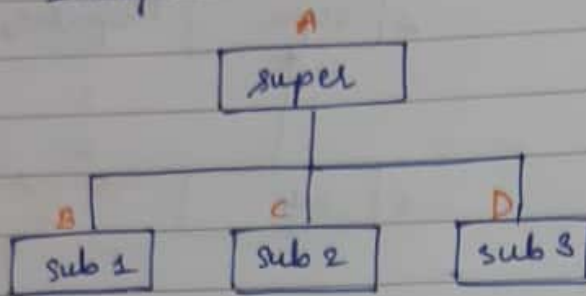 A
super
B C D
sub 1 sub 2 sub 3